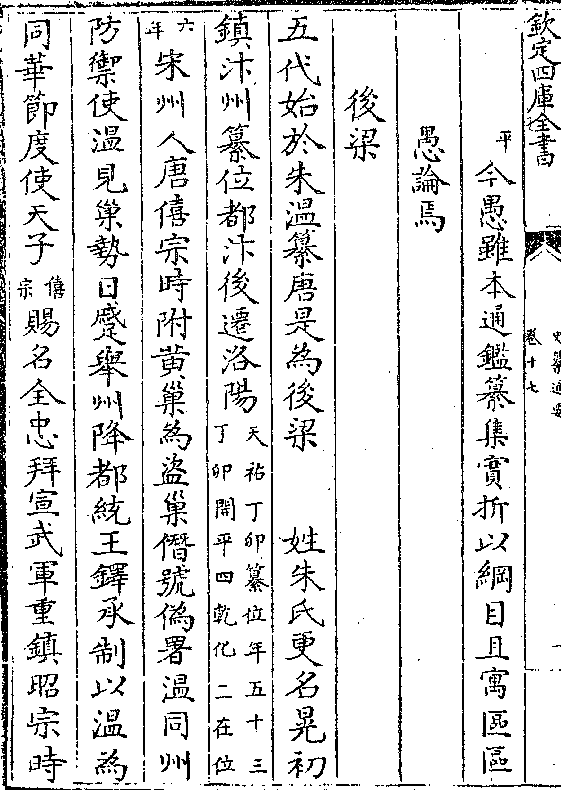 欽定四庫全書
史纂通要
卷十七
平今愚雖本通鑑纂集實折以綱目且寓區區
愚論焉
後梁
五代始於朱温纂唐是為後梁　姓朱氏更名晃初
鎮汴州纂位都汴後遷洛陽天祐丁卯纂位年五十三丁卯開平四乾化二在位
六年宋州人唐僖宗時附黄巢為盜巢僭號偽署温同州
防禦使温見巢勢日蹙舉州降都統王鐸承制以温為
同華節度使天子僖宗賜名全忠拜宣武軍重鎮昭宗時